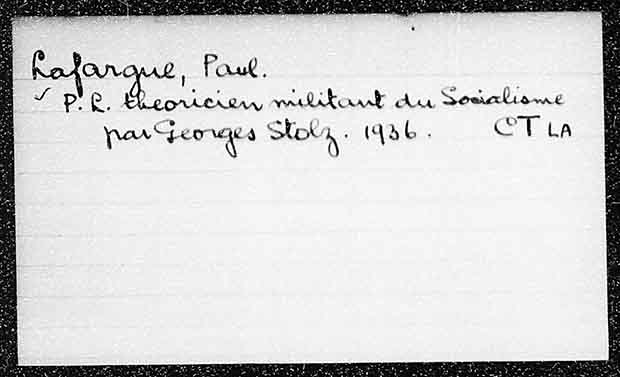 Lafargue, Paul.
✓ P. L. theoricien militant du Socialisme
par Georges Stolz. 1936. CT LA